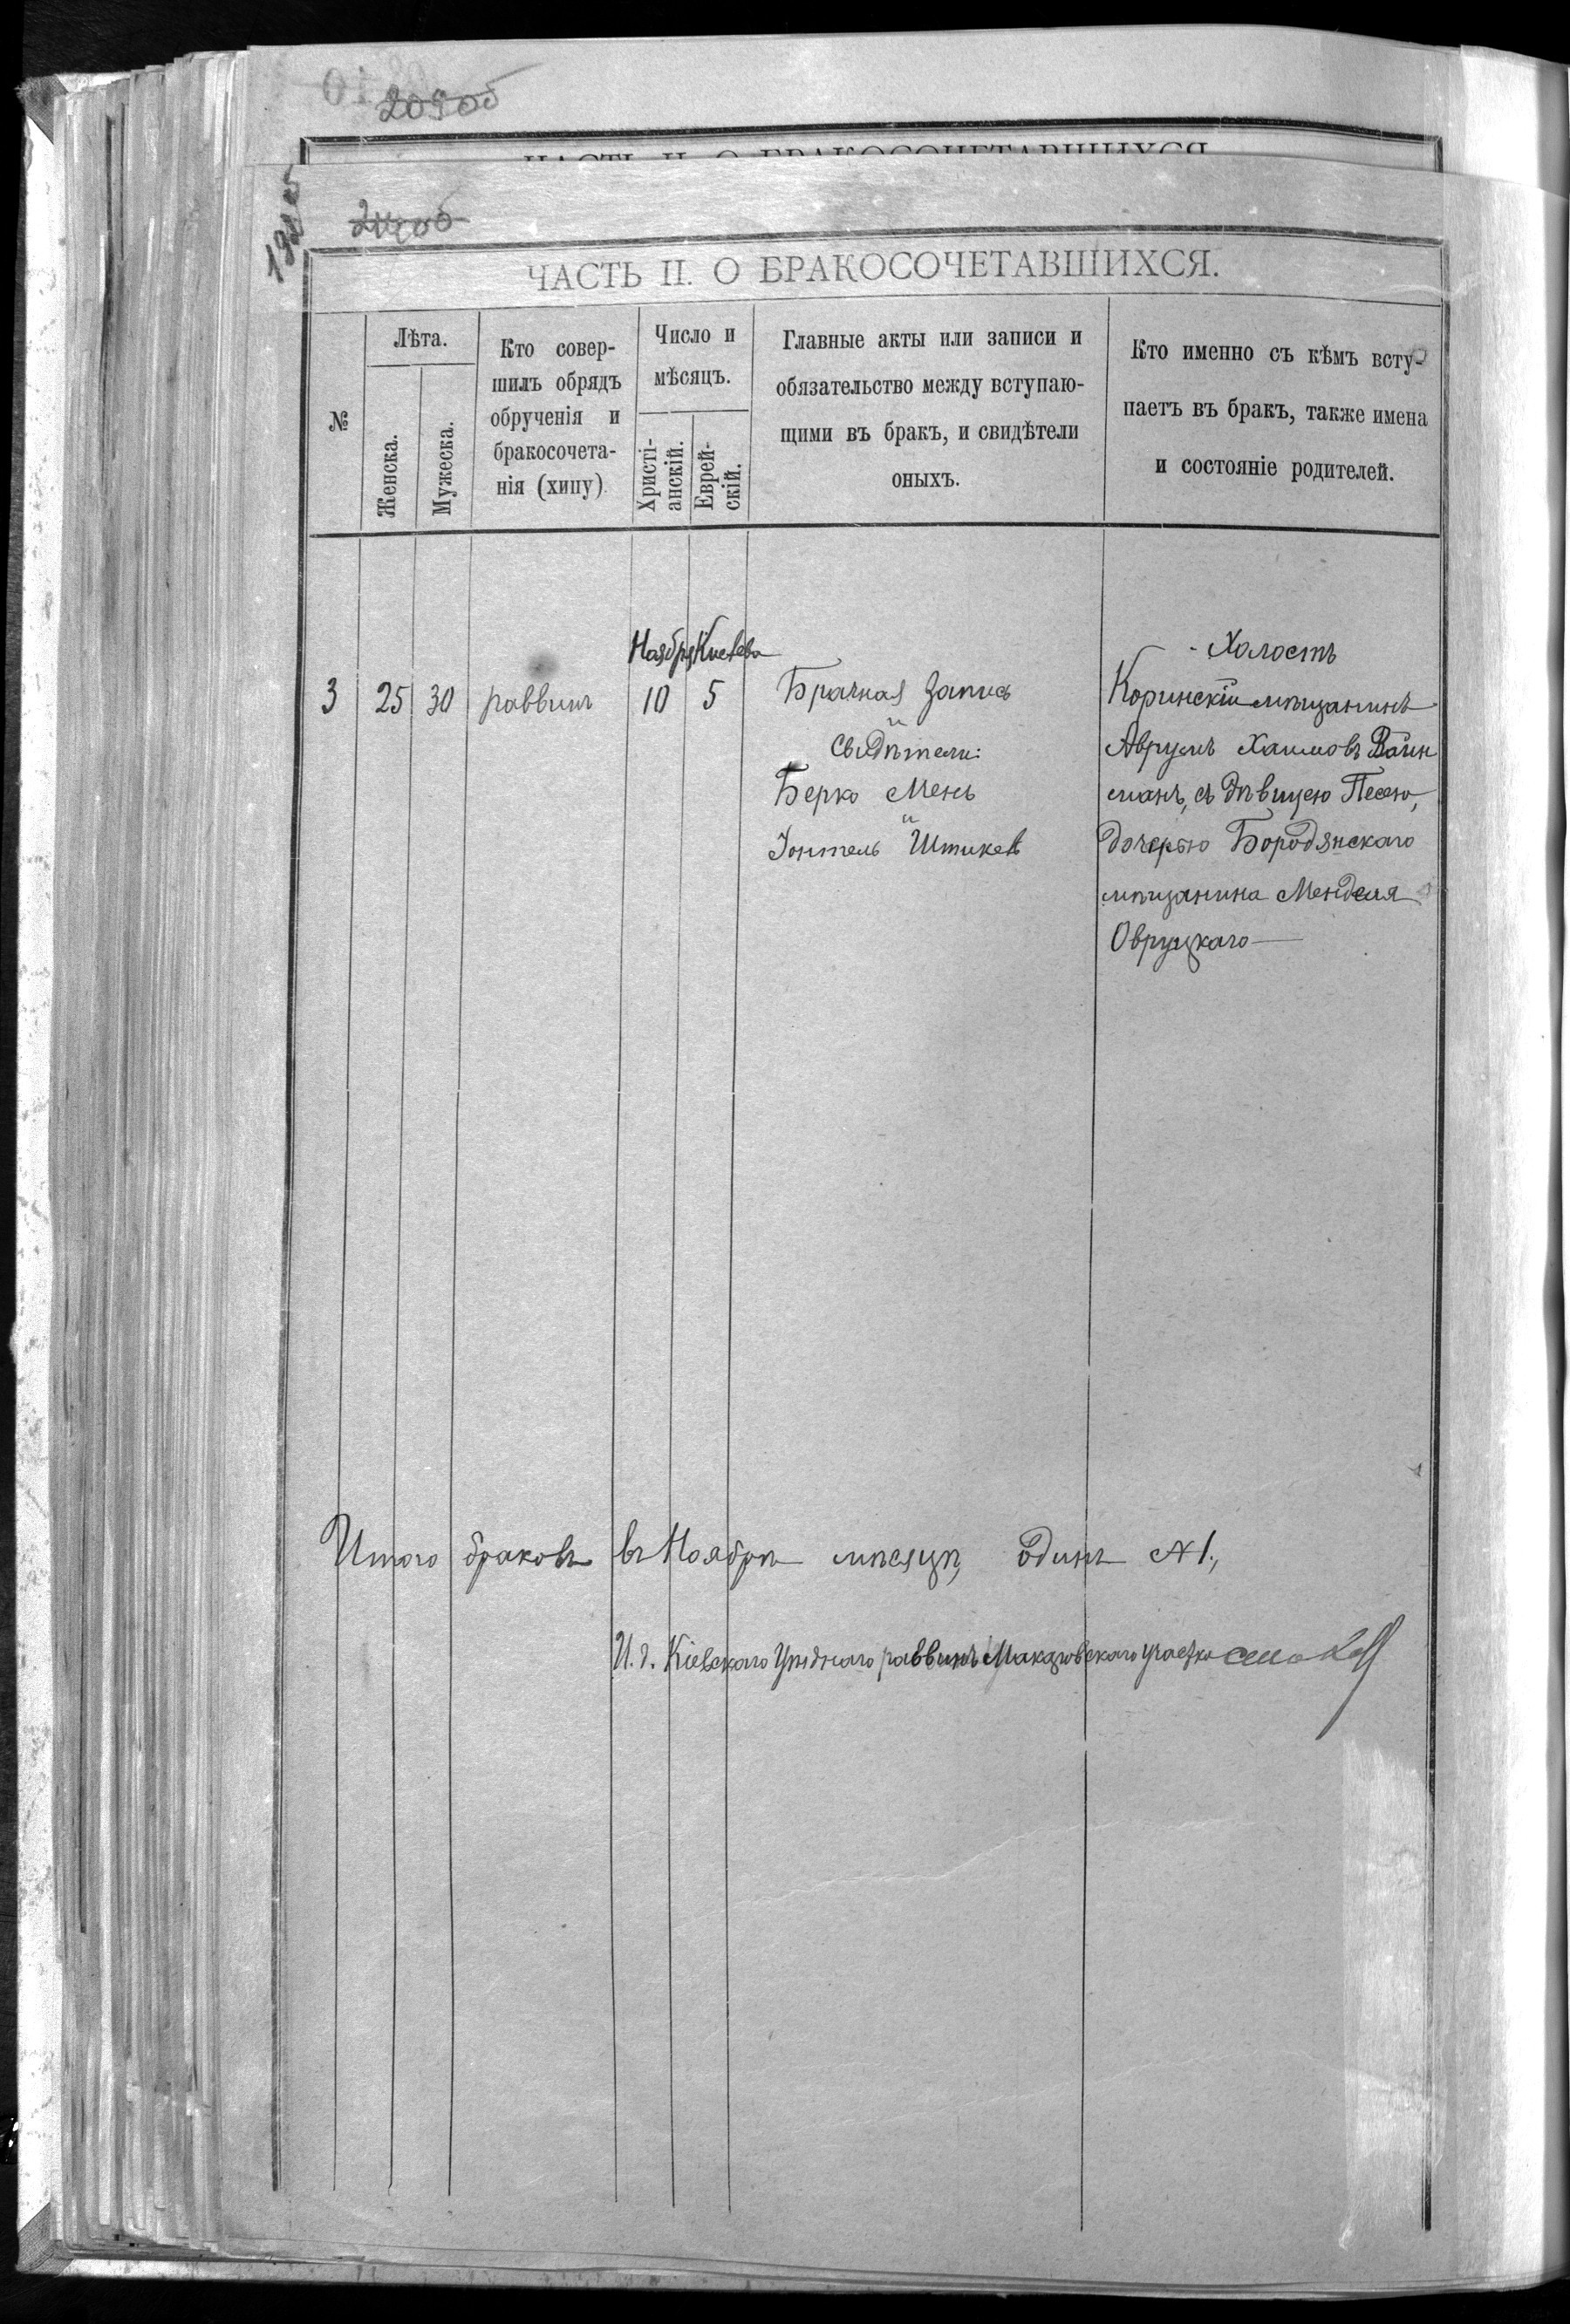 209об
ЧАСТЬ II. О БРАКОСОЧЕТАВШИХСЯ.
ЧАСТЬ II. О БРАКОСОЧЕТАВШИХСЯ.
№
Лѣта.
Женска.
Мужеска.
Кто совер-
шилъ обрядъ
обрученія и
бракосочета-
нія (хипу)
Число и
мѣсяцъ.
Христі-
анскій.
Еврей-
скій.
Главные акты или записи и
обязательство между вступаю-
щими въ бракъ, и свидѣтели
оныхъ.
Кто именно съ кѣмъ всту-
паетъ въ бракъ, также имена
и состояніе родителей.
Ноября Кислева
3 25 30 раввинъ 10 5
Брачная запись
и
свидѣтели:
Берко Мень
и
Іонтель
Холостъ
мѣщанинъ
Аврумъ Хаимовъ Вайн
манъ, съ дѣвицею Песею,
дочерью Бородянскаго
мѣщанина Менделя
Овруцкаго
Итого браковъ въ Ноябрѣ мѣсяцѣ, одинъ №1.,
И. д. Кіевскаго Уѣзднаго раввинъ Макаровскаго участка